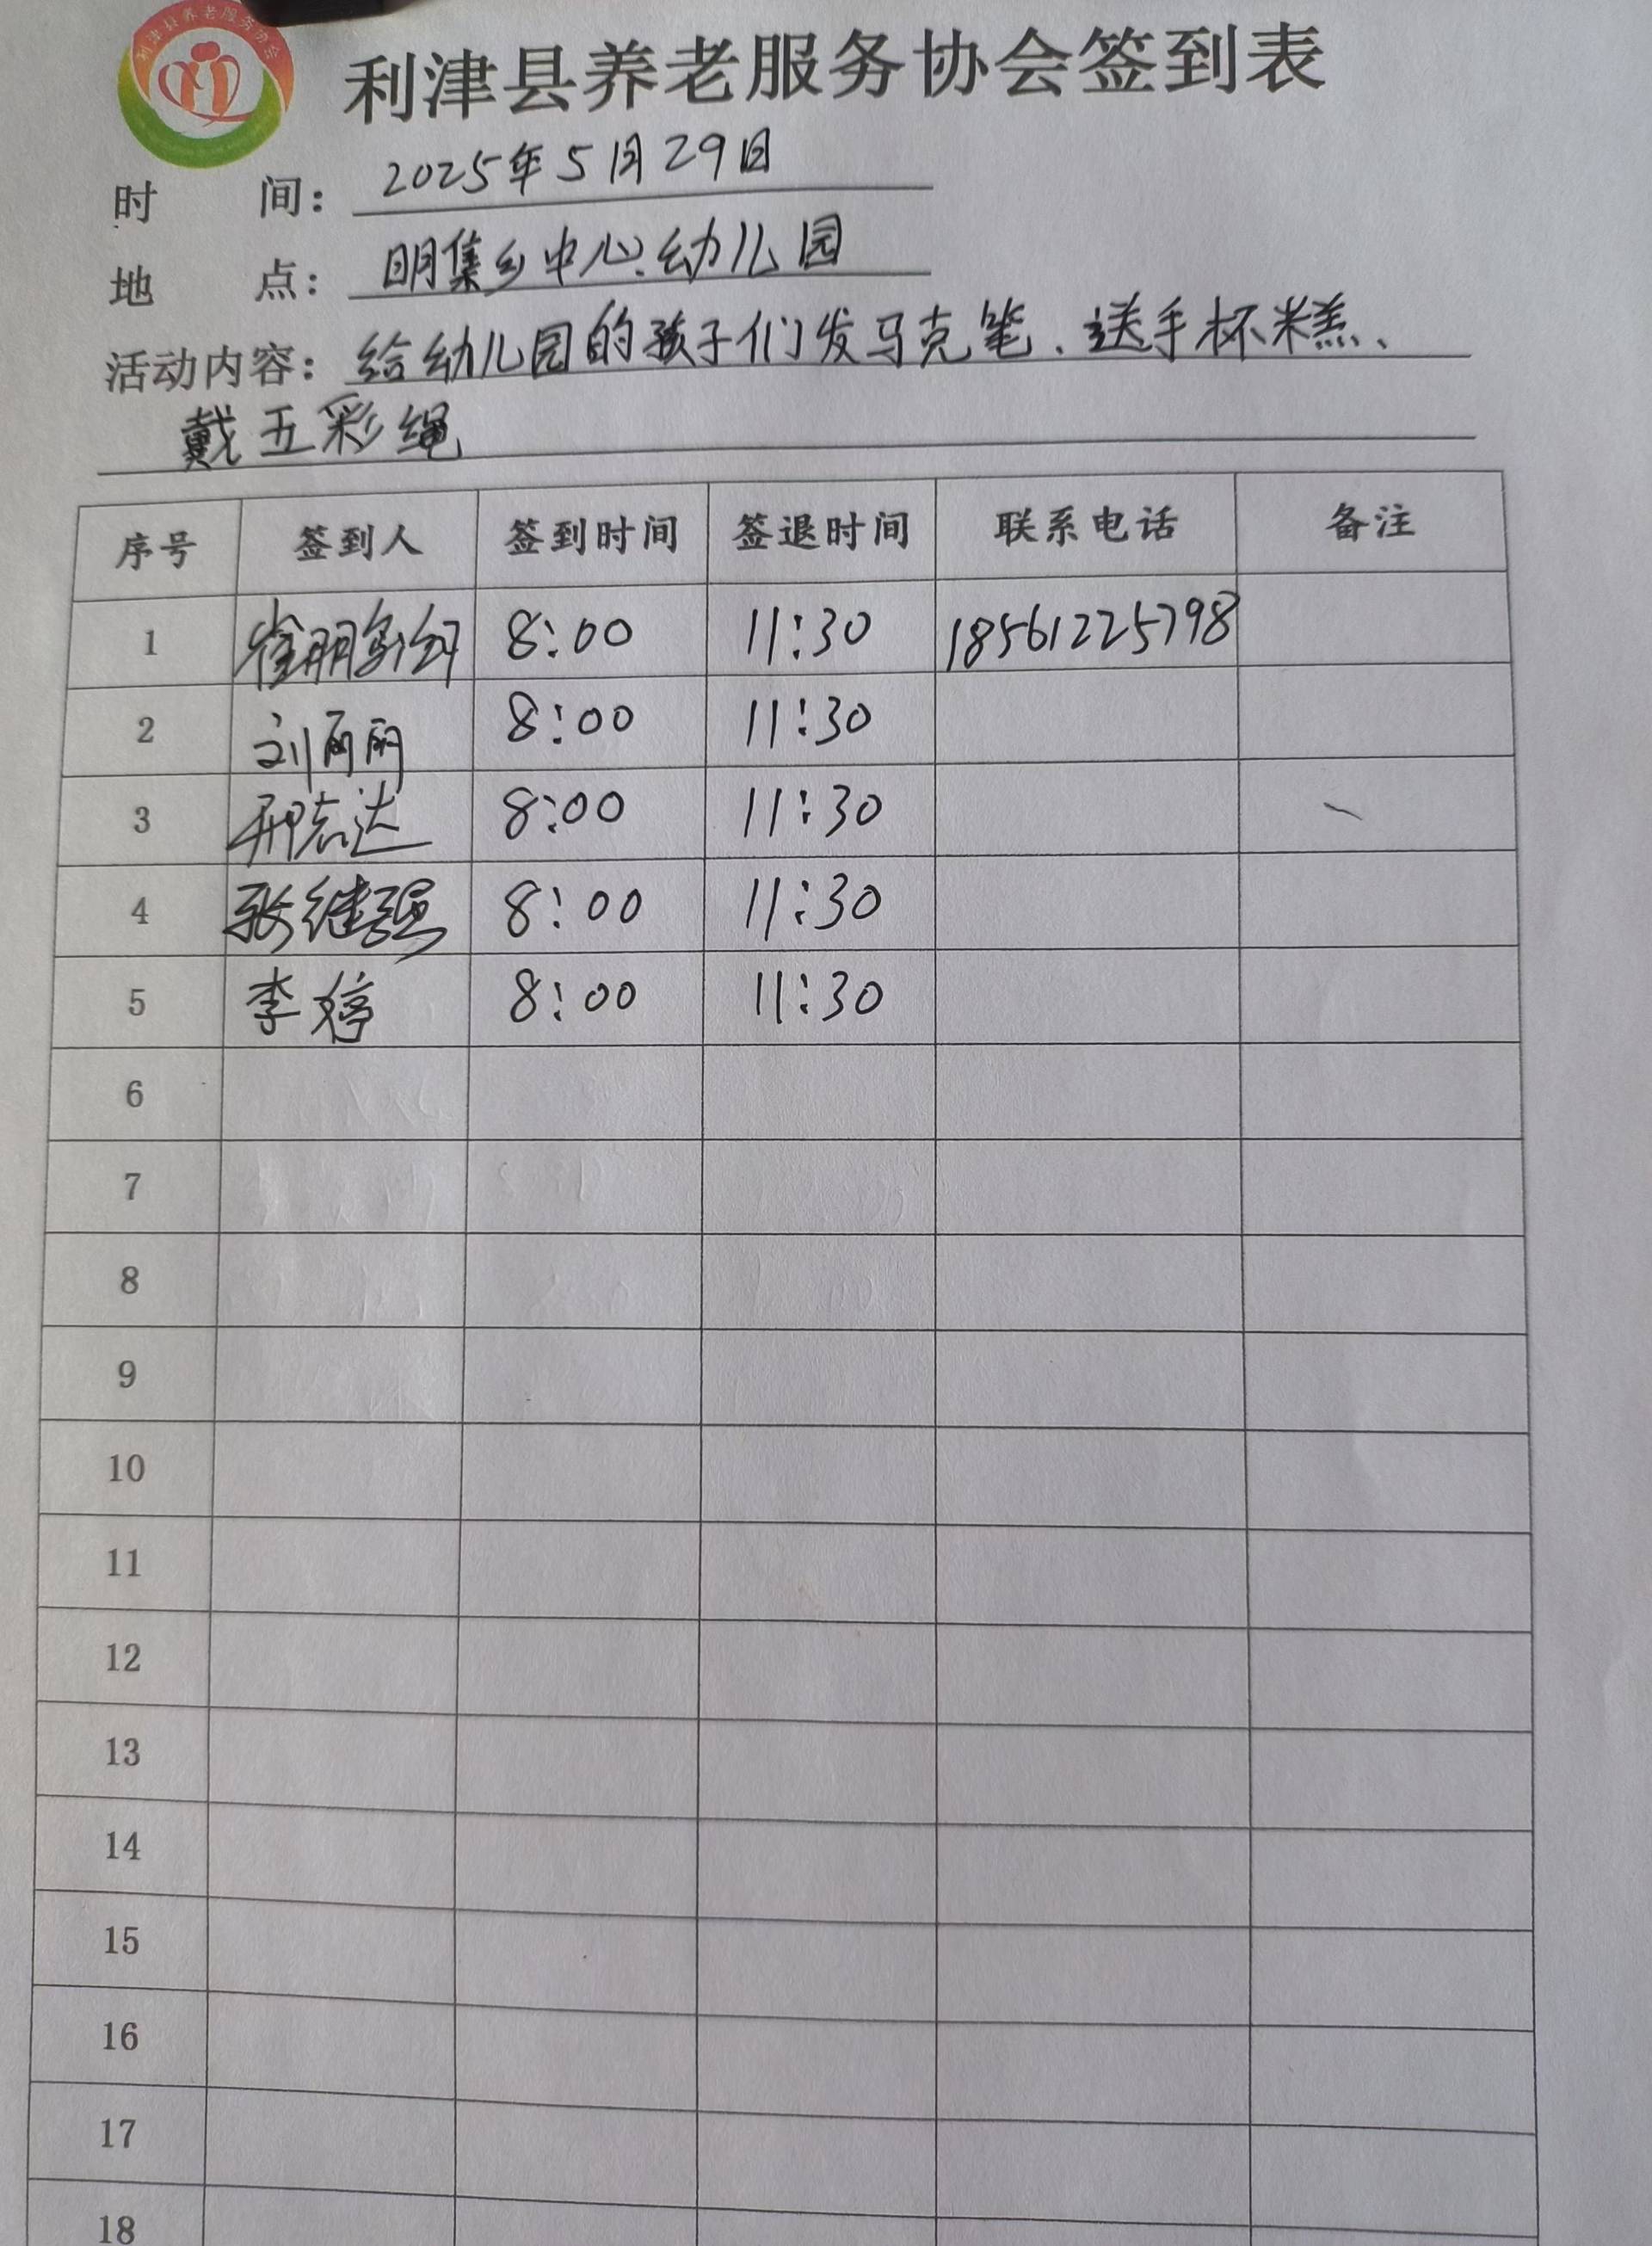 利津县养老服务协会
利津县养老服务协会签到表
时 间： 2025年5月29日
地 点： 明集乡中心幼儿园
活动内容： 给幼儿园的孩子们发马克笔、送手杯糕、
戴五彩绳
序号 签到人 签到时间 签退时间 联系电话 备注
1 8:00 11:30 18561225798
2 刘丽丽 8:00 11:30
3 邢志达 8:00 11:30
4 张继强 8:00 11:30
5 李婷 8:00 11:30
6
7
8
9
10
11
12
13
14
15
16
17
18